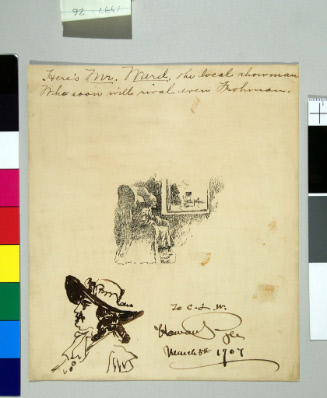 Here's Mr. Ward, the local showman
Who soon will rival even Frohman.
To C. L. W.
Howard Pyle
March 5th 1907